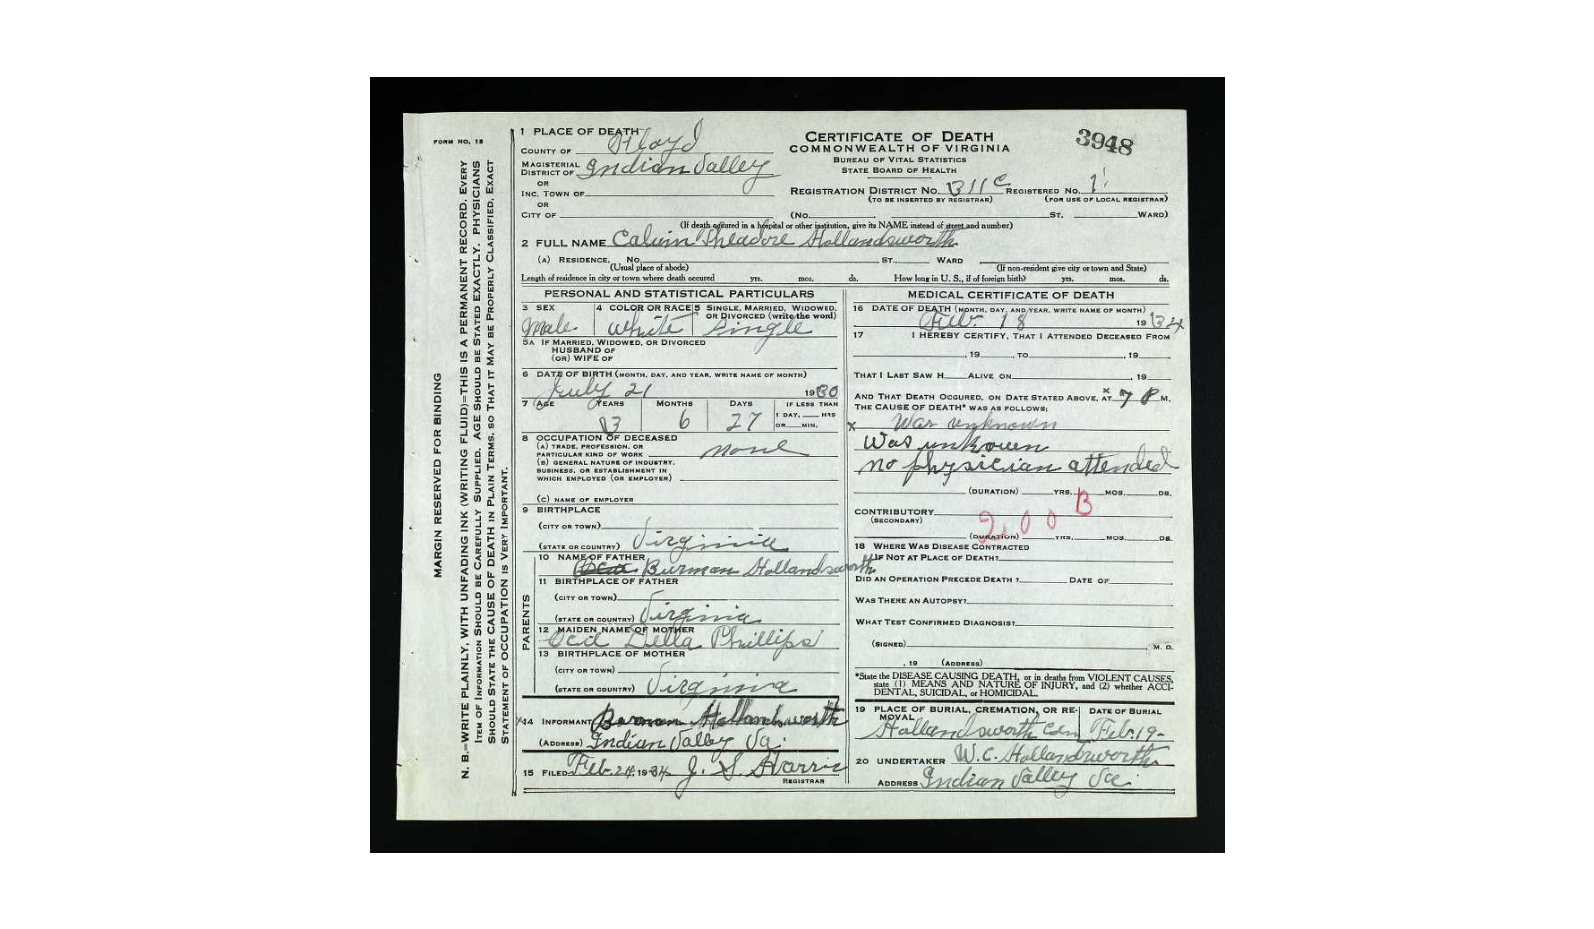 FORM NO. 15
MARGIN RESERVED FOR BINDING
N. B.—WRITE PLAINLY, WITH UNFADING INK (WRITING FLUID)—THIS IS A PERMANENT RECORD. EVERY
ITEM OF INFORMATION SHOULD BE CAREFULLY SUPPLIED. AGE SHOULD BE STATED EXACTLY. PHYSICIANS
SHOULD STATE THE CAUSE OF DEATH IN PLAIN TERMS, SO THAT IT MAY BE PROPERLY CLASSIFIED. EXACT
STATEMENT OF OCCUPATION IS VERY IMPORTANT.
CERTIFICATE OF DEATH
COMMONWEALTH OF VIRGINIA
BUREAU OF VITAL STATISTICS
STATE BOARD OF HEALTH
3948
1 PLACE OF DEATH
COUNTY OF Floyd
MAGISTERIAL
DISTRICT OF Indian Valley
OR
INC. TOWN OF
OR
CITY OF
REGISTRATION DISTRICT NO. 311C REGISTERED NO. 1
(TO BE INSERTED BY REGISTRAR) (FOR USE OF LOCAL REGISTRAR)
(NO. ST. WARD)
(If death occured in a hospital or other institution, give its NAME instead of street and number)
2 FULL NAME Calvin Theadore Hollandsworth
(A) RESIDENCE, NO. ST. WARD
(Usual place of abode) (If non-resident give city or town and State)
Length of residence in city or town where death occured yrs. mos. ds. How long in U. S., if of foreign birth? yrs. mos. ds.
PERSONAL AND STATISTICAL PARTICULARS
3 SEX 4 COLOR OR RACE 5 SINGLE, MARRIED, WIDOWED,
OR DIVORCED (write the word)
Male White Single
5A IF MARRIED, WIDOWED, OR DIVORCED
HUSBAND OF
(OR) WIFE OF
6 DATE OF BIRTH (MONTH, DAY, AND YEAR, WRITE NAME OF MONTH)
July 21 1930
7 AGE YEARS MONTHS DAYS IF LESS THAN
1 DAY, HRS
OR MIN.
3 6 27
8 OCCUPATION OF DECEASED
(A) TRADE, PROFESSION, OR
PARTICULAR KIND OF WORK none
(B) GENERAL NATURE OF INDUSTRY,
BUSINESS, OR ESTABLISHMENT IN
WHICH EMPLOYED (OR EMPLOYER)
(C) NAME OF EMPLOYER
9 BIRTHPLACE
(CITY OR TOWN)
(STATE OR COUNTRY) Virginia
PARENTS
10 NAME OF FATHER
Burman Hollandsworth
11 BIRTHPLACE OF FATHER
(CITY OR TOWN)
(STATE OR COUNTRY) Virginia
12 MAIDEN NAME OF MOTHER
Ocie Della Phillips
13 BIRTHPLACE OF MOTHER
(CITY OR TOWN)
(STATE OR COUNTRY) Virginia
14 INFORMANT Burman Hollandsworth
(ADDRESS) Indian Valley Va.
15 FILED Feb. 24, 1934 J. S. Harris
REGISTRAR
MEDICAL CERTIFICATE OF DEATH
16 DATE OF DEATH (MONTH, DAY, AND YEAR, WRITE NAME OF MONTH)
Feb. 18 1934
17 I HEREBY CERTIFY, THAT I ATTENDED DECEASED FROM
, 19 , TO , 19
THAT I LAST SAW H ALIVE ON , 19
AND THAT DEATH OCCURED, ON DATE STATED ABOVE, AT 7 P M.
THE CAUSE OF DEATH* WAS AS FOLLOWS:
x Was unknown
Was unknown
no physician attended
(DURATION) YRS. MOS. DS.
CONTRIBUTORY
(SECONDARY)
200 B
(DURATION) YRS. MOS. DS.
18 WHERE WAS DISEASE CONTRACTED
IF NOT AT PLACE OF DEATH?
DID AN OPERATION PRECEDE DEATH ? DATE OF
WAS THERE AN AUTOPSY?
WHAT TEST CONFIRMED DIAGNOSIS?
(SIGNED) , M. D.
, 19 (ADDRESS)
*State the DISEASE CAUSING DEATH, or in deaths from VIOLENT CAUSES,
state (1) MEANS AND NATURE OF INJURY, and (2) whether ACCI-
DENTAL, SUICIDAL, or HOMICIDAL.
19 PLACE OF BURIAL, CREMATION, OR RE-
MOVAL DATE OF BURIAL
Hollandsworth Cem Feb. 19-
20 UNDERTAKER W. C. Hollandsworth
ADDRESS Indian Valley Va.